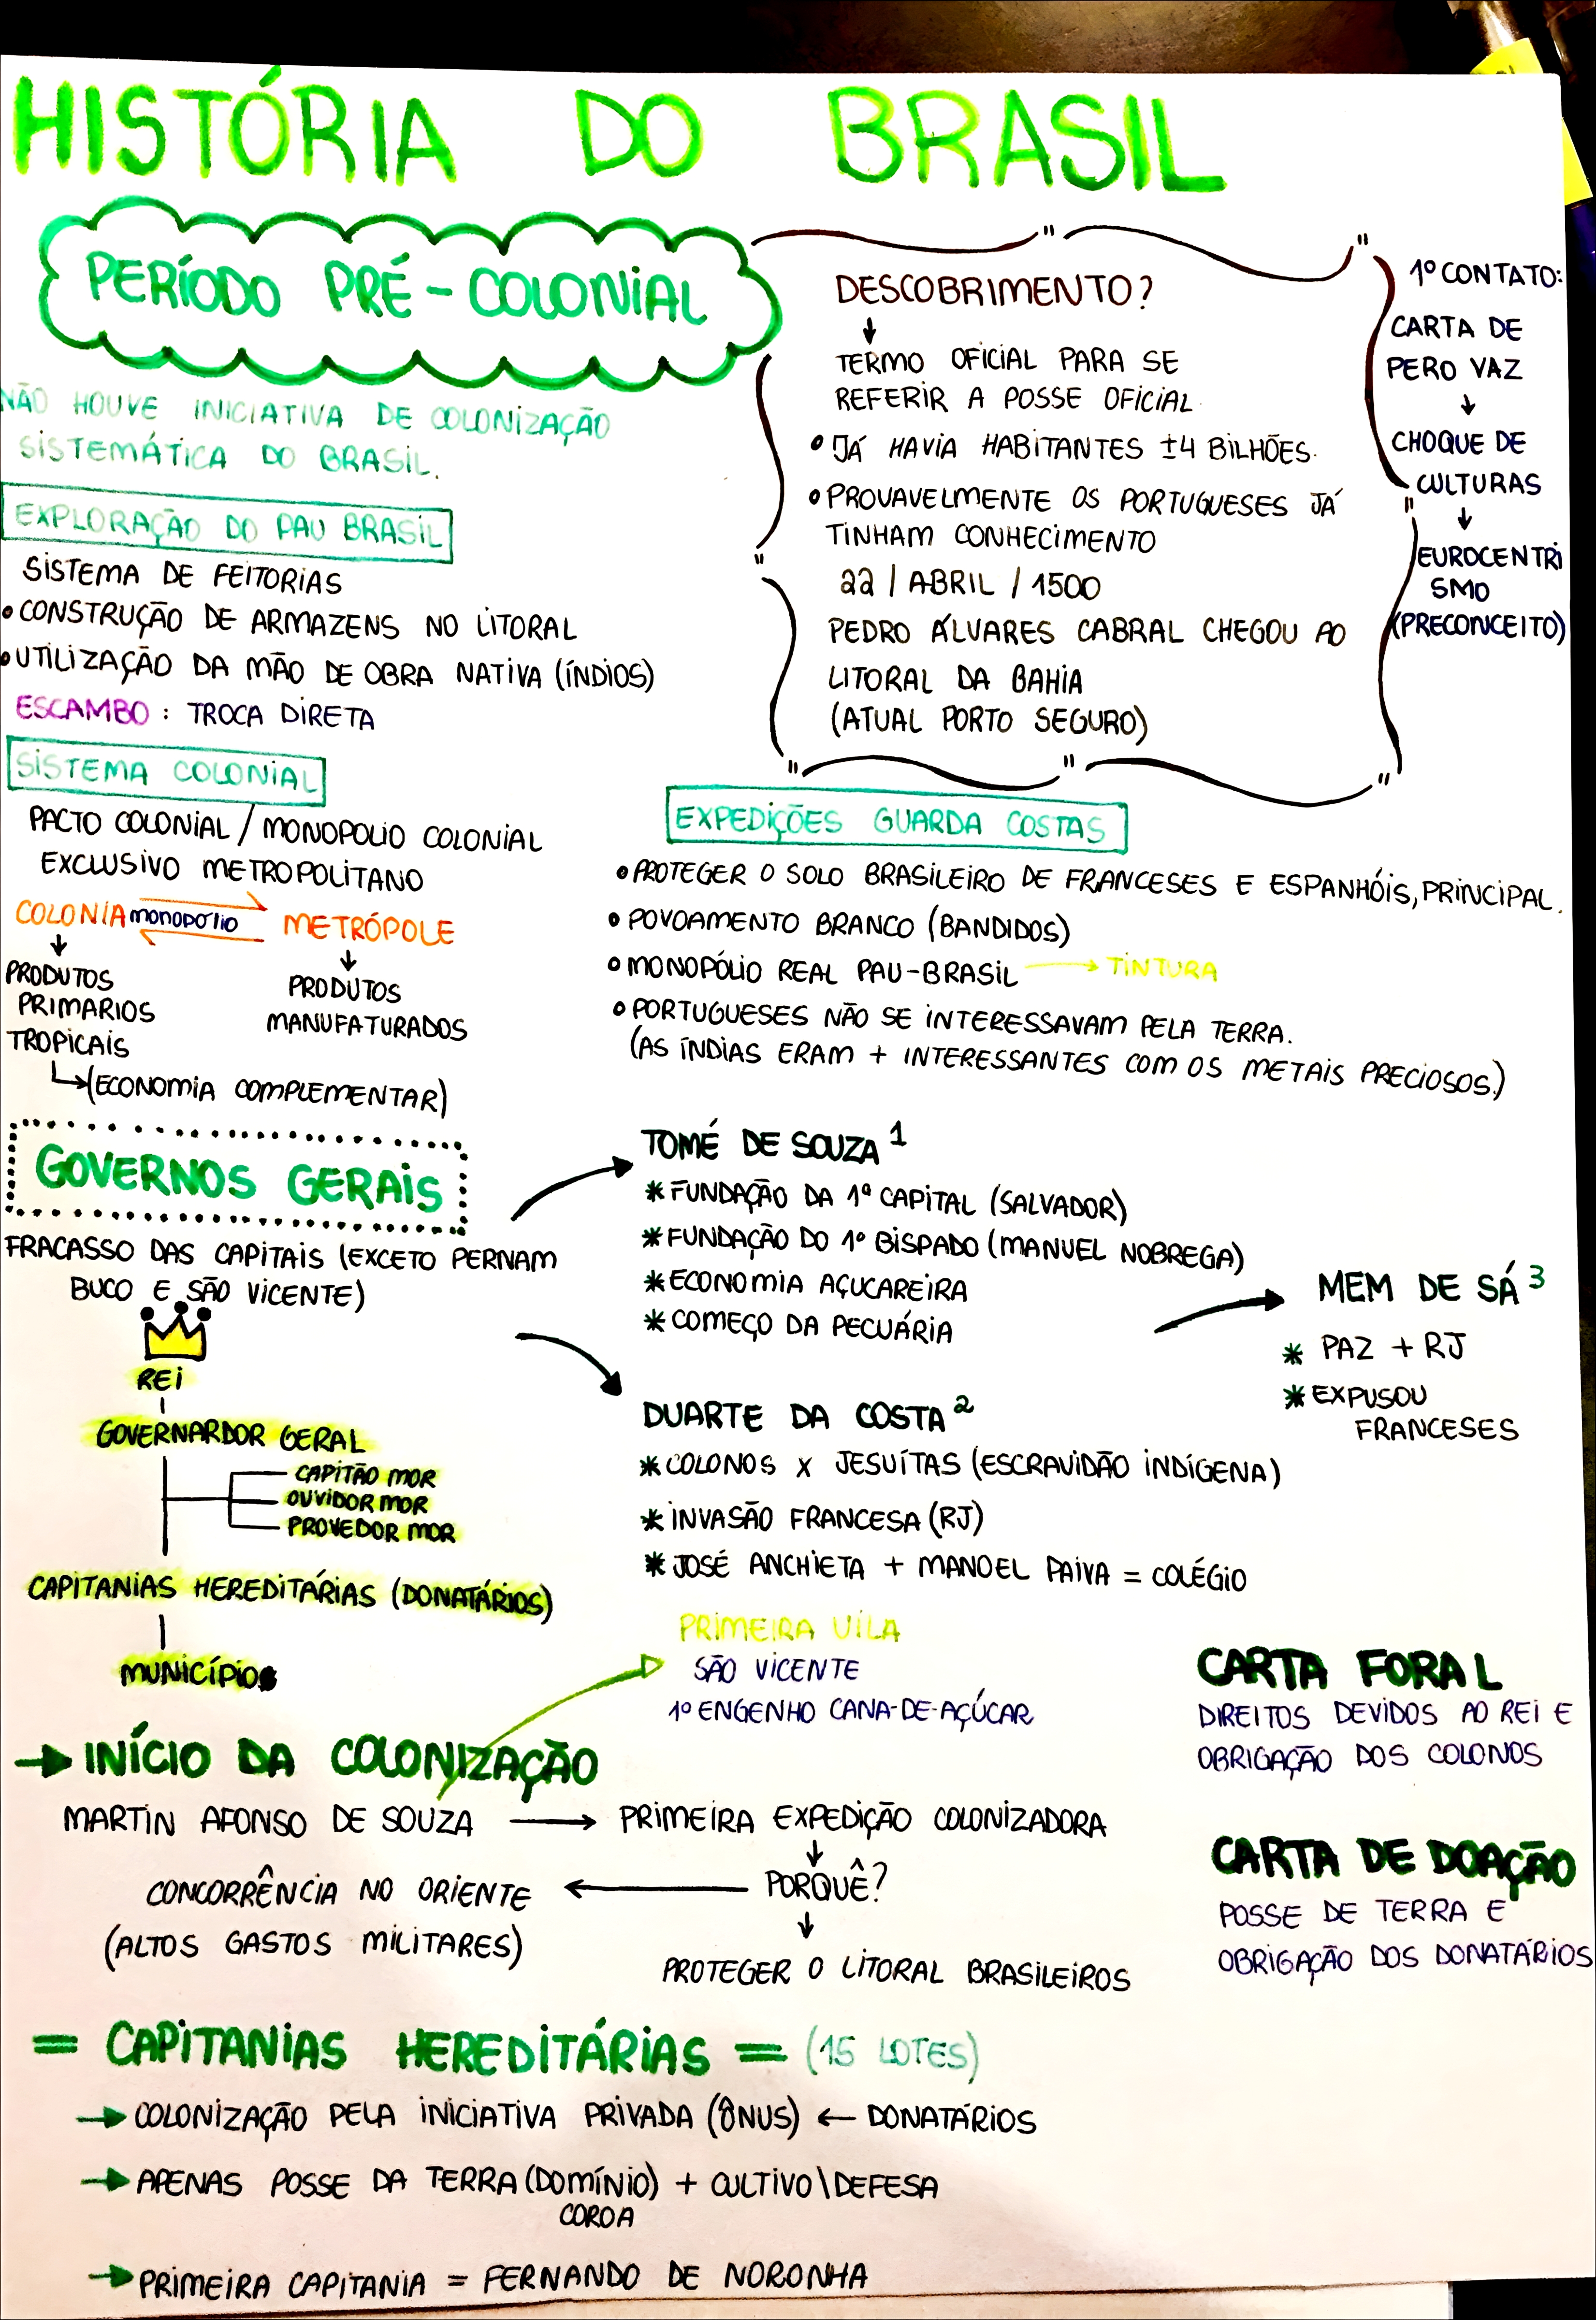 HISTÓRIA DO BRASIL
PERÍODO PRÉ-COLONIAL
NÃO HOUVE INICIATIVA DE COLONIZAÇÃO
SISTEMÁTICA DO BRASIL.
EXPLORAÇÃO DO PAU BRASIL
SISTEMA DE FEITORIAS
•CONSTRUÇÃO DE ARMAZENS NO LITORAL
•UTILIZAÇÃO DA MÃO DE OBRA NATIVA (ÍNDIOS)
ESCAMBO: TROCA DIRETA
DESCOBRIMENTO?
↓
TERMO OFICIAL PARA SE
REFERIR A POSSE OFICIAL.
• JÁ HAVIA HABITANTES ±4 BILHÕES.
• PROVAVELMENTE OS PORTUGUESES JÁ
TINHAM CONHECIMENTO
22 / ABRIL / 1500
PEDRO ÁLVARES CABRAL CHEGOU AO
LITORAL DA BAHIA
(ATUAL PORTO SEGURO)
1º CONTATO:
CARTA DE
PERO VAZ
↓
CHOQUE DE
CULTURAS
↓
EUROCENTRI
SMO
(PRECONCEITO)
SISTEMA COLONIAL
PACTO COLONIAL / MONOPOLIO COLONIAL
EXCLUSIVO METROPOLITANO
COLONIA monopolio METRÓPOLE
↓
PRODUTOS
PRIMARIOS
TROPICAIS
↳(ECONOMIA COMPLEMENTAR)
↓
PRODUTOS
MANUFATURADOS
EXPEDIÇÕES GUARDA COSTAS
• PROTEGER O SOLO BRASILEIRO DE FRANCESES E ESPANHÓIS, PRINCIPAL.
• POVOAMENTO BRANCO (BANDIDOS)
• MONOPÓLIO REAL PAU-BRASIL → TINTURA
• PORTUGUESES NÃO SE INTERESSAVAM PELA TERRA.
(AS ÍNDIAS ERAM + INTERESSANTES COM OS METAIS PRECIOSOS.)
GOVERNOS GERAIS
FRACASSO DAS CAPITAIS (EXCETO PERNAM
BUCO E SÃO VICENTE)
REI
GOVERNARDOR GERAL
CAPITÃO MOR
OUVIDOR MOR
PROVEDOR MOR
CAPITANIAS HEREDITÁRIAS (DONATÁRIOS)
MUNICÍPIOS
TOMÉ DE SOUZA 1
* FUNDAÇÃO DA 1ª CAPITAL (SALVADOR)
* FUNDAÇÃO DO 1º BISPADO (MANUEL NOBREGA)
* ECONOMIA AÇUCAREIRA
* COMEÇO DA PECUÁRIA
DUARTE DA COSTA 2
* COLONOS X JESUÍTAS (ESCRAVIDÃO INDÍGENA)
* INVASÃO FRANCESA (RJ)
* JOSÉ ANCHIETA + MANOEL PAIVA = COLÉGIO
MEM DE SÁ 3
* PAZ + RJ
* EXPUSOU
FRANCESES
PRIMEIRA VILA
SÃO VICENTE
1º ENGENHO CANA-DE-AÇÚCAR
→ INÍCIO DA COLONIZAÇÃO
MARTIN AFONSO DE SOUZA → PRIMEIRA EXPEDIÇÃO COLONIZADORA
↓
CONCORRÊNCIA NO ORIENTE ← PORQUÊ?
(ALTOS GASTOS MILITARES)
↓
PROTEGER O LITORAL BRASILEIROS
CARTA FORAL
DIREITOS DEVIDOS AO REI E
OBRIGAÇÃO DOS COLONOS
CARTA DE DOAÇÃO
POSSE DE TERRA E
OBRIGAÇÃO DOS DONATÁRIOS
= CAPITANIAS HEREDITÁRIAS = (15 LOTES)
→ COLONIZAÇÃO PELA INICIATIVA PRIVADA (ÔNUS) ← DONATÁRIOS
→ APENAS POSSE DA TERRA (DOMÍNIO) + CULTIVO\DEFESA
COROA
→ PRIMEIRA CAPITANIA = FERNANDO DE NORONHA